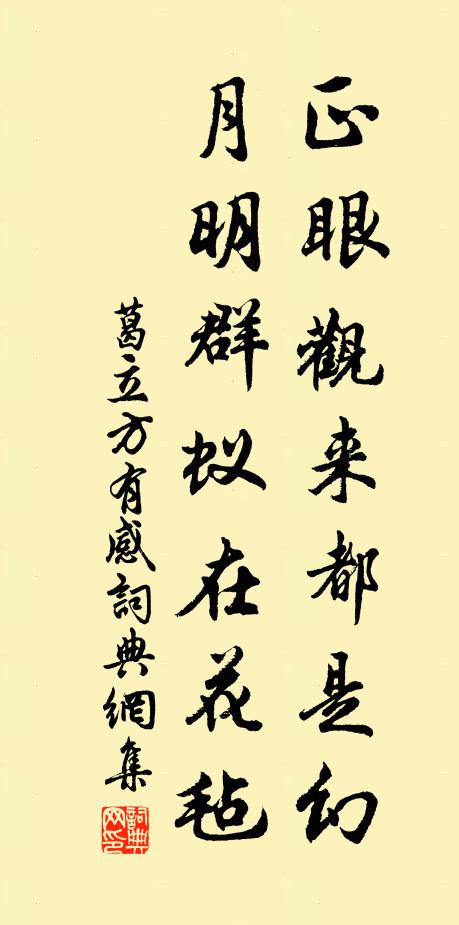 正眼觀来都是幻
月明群蚁在花毡
葛立方有感詞典網集
詞典网印